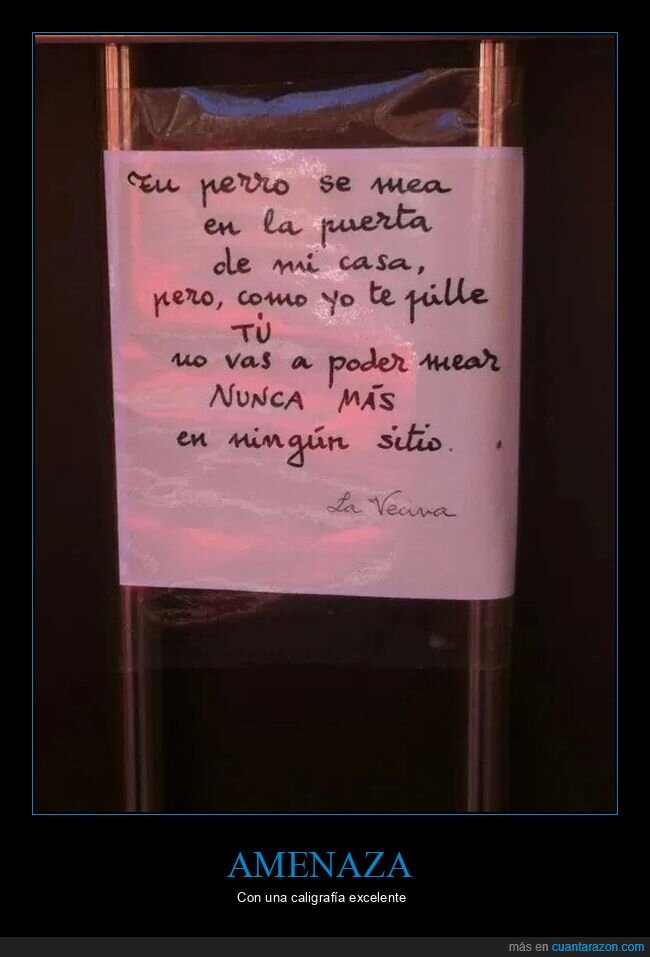 Tu perro se mea
en la puerta
de mi casa,
pero, como yo te pille
TÚ
no vas a poder mear
NUNCA MÁS
en ningún sitio.
La Vecina
AMENAZA
Con una caligrafía excelente
más en cuantarazon.com